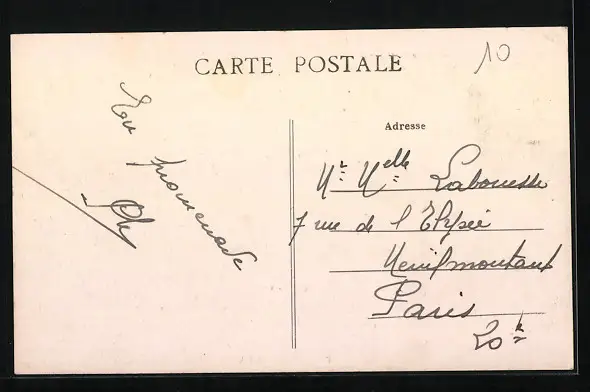 CARTE POSTALE
10
En promenade
Adresse
Mr Melle Labouesse
7 rue de l'Elysée
Menilmontant
Paris
20e